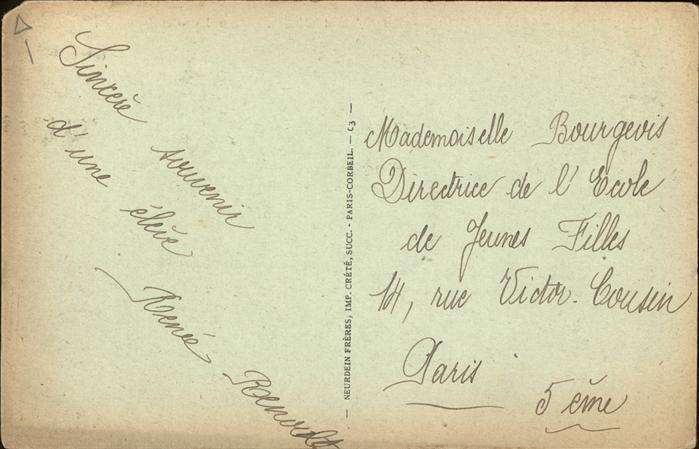 Sincère souvenir
d'une élève
Renée
NEURDEIN FRÈRES, IMP. CRÉTÉ, SUCC. - PARIS-CORBEIL. — C3 —
Mademoiselle Bourgevis
Directrice de l'Ecole
de Jeunes Filles
14, rue Victor-Cousin
Paris
5ème